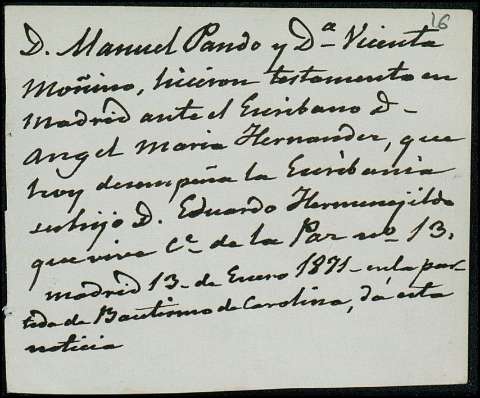 16
D. Manuel Pando y Dª Vicenta
Moñino, hicieron testamento en
Madrid ante el Escribano D-
Angel Maria Hernandez, que
hoy desempeña la Escribania
su hijo D. Eduardo Hermenejildo
que vive Cª de la Paz nº 13.
Madrid 13 de Enero 1871 - en la par-
tida de Bautismo de Carolina, dá esta
noticia